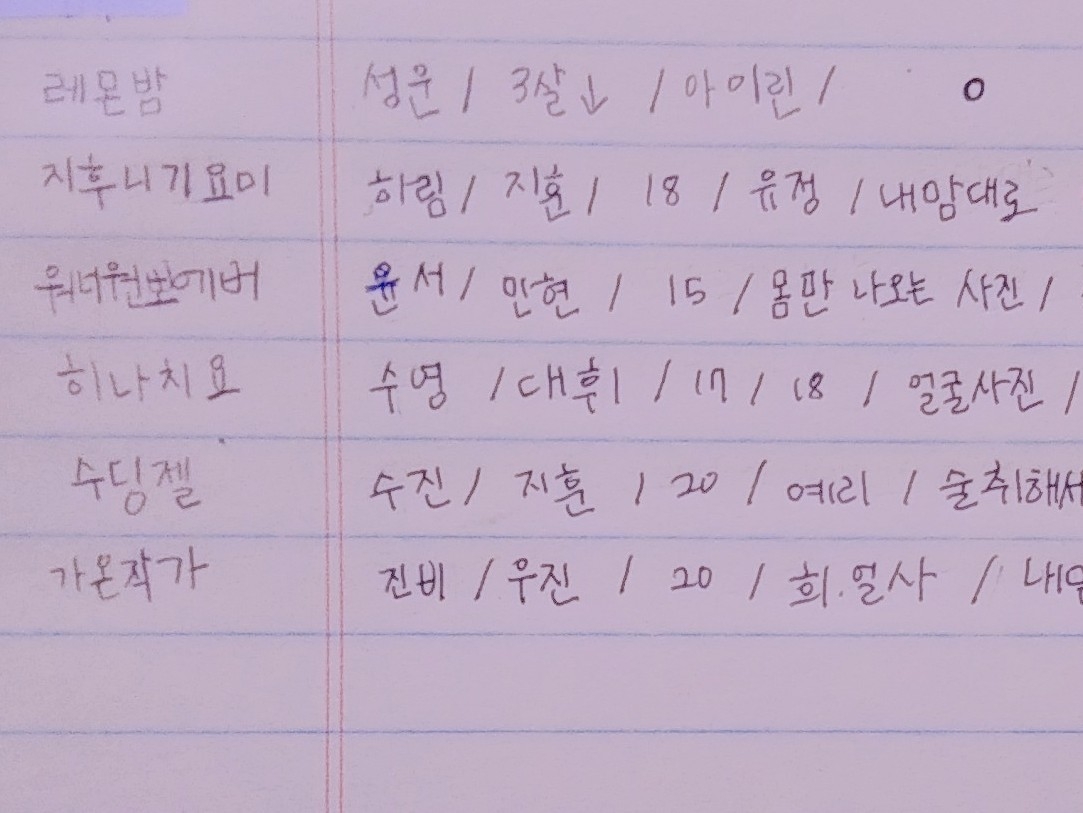 레몬밤 성운 / 3살↓ / 아이린 / O
지후니기요미 하림 / 지훈 / 18 / 유정 / 내맘대로
워너원뽀에버 윤서 / 민현 / 15 / 몸만 나오는 사진 /
히나치요 수영 / 대휘 / 17 / 18 / 얼굴사진 /
수딩젤 수진 / 지훈 / 20 / 예리 / 술취해서
가온작가 진비 / 우진 / 20 / 희.얼사 /